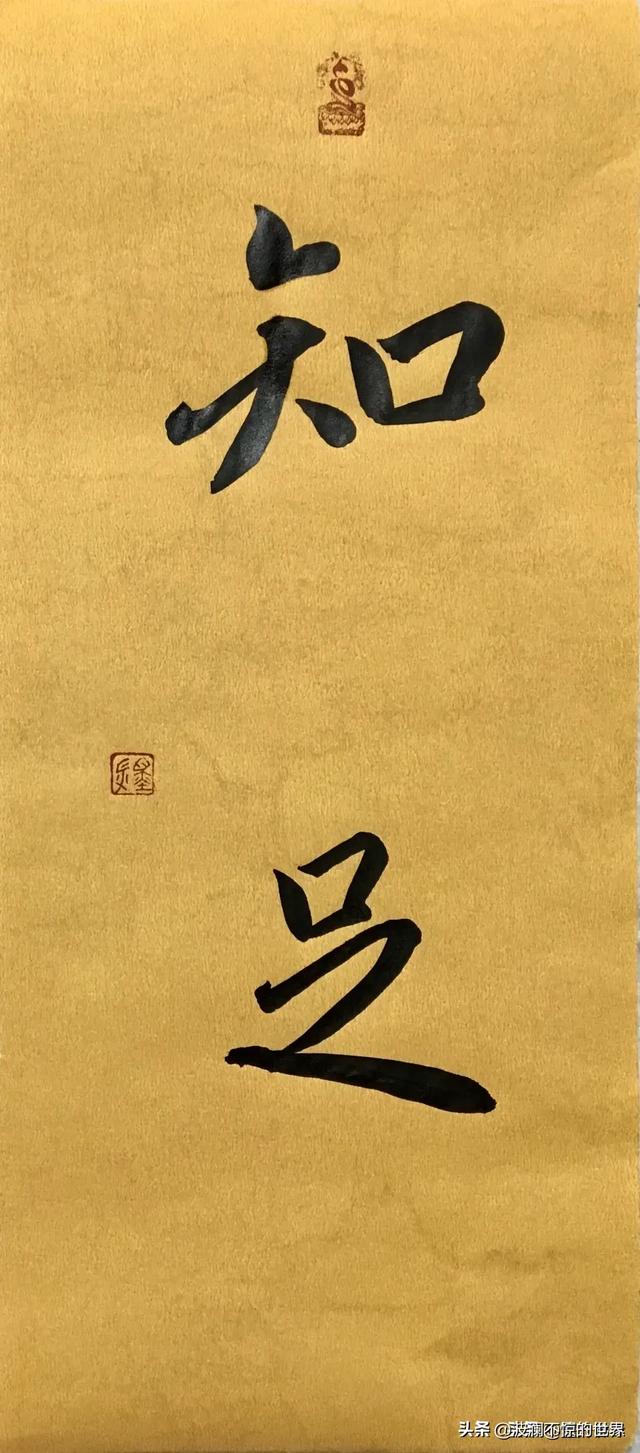 知
足
头条 @波澜不惊的世界